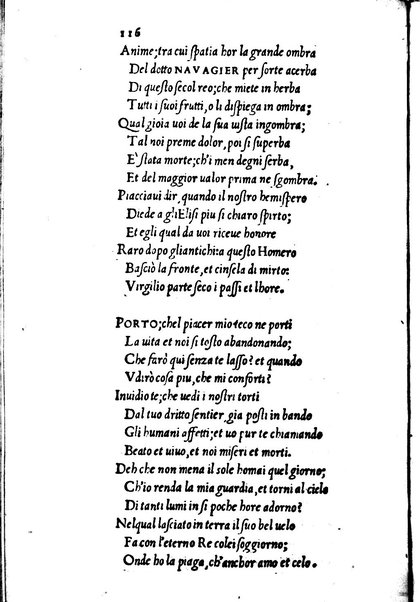 116
Anime; tra cui spatia hor la grande ombra
Del dotto NAVAGIER per sorte acerba
Di questo secol reo; che miete in herba
Tutti i suoi frutti, o li dispiega in ombra;
Qual gioia uoi de la sua uista ingombra;
Tal noi preme dolor, poi si superba
E' stata morte; ch'i men degni serba,
Et del maggior ualor prima ne sgombra.
Piacciaui dir, quando il nostro hemispero
Diede a gli Elisi piu si chiaro spirto;
Et egli qual da uoi riceue honore
Raro dopo gliantichi: a questo Homero
Basciò la fronte, et cinsela di mirto:
Virgilio parte seco i passi et lhore.
PORTO; chel piacer mio teco ne porti
La uita et noi si tosto abandonando;
Che farò qui senza te lasso? et quando
Vdirò cosa piu, che mi conforti?
Inuidio te; che uedi i nostri torti
Dal tuo dritto sentier, gia posti in bando
Gli humani affetti; et uo pur te chiamando
Beato et uiuo, et noi miseri et morti.
Deh che non mena il sole homai quel giorno;
Ch'io renda la mia guardia, et torni al cielo
Di tanti lumi in si poche hore adorno?
Nelqual lasciato in terra il suo bel uelo
Fa con l'eterno Re colei soggiorno;
Onde ho la piaga, ch'anchor amo et celo.